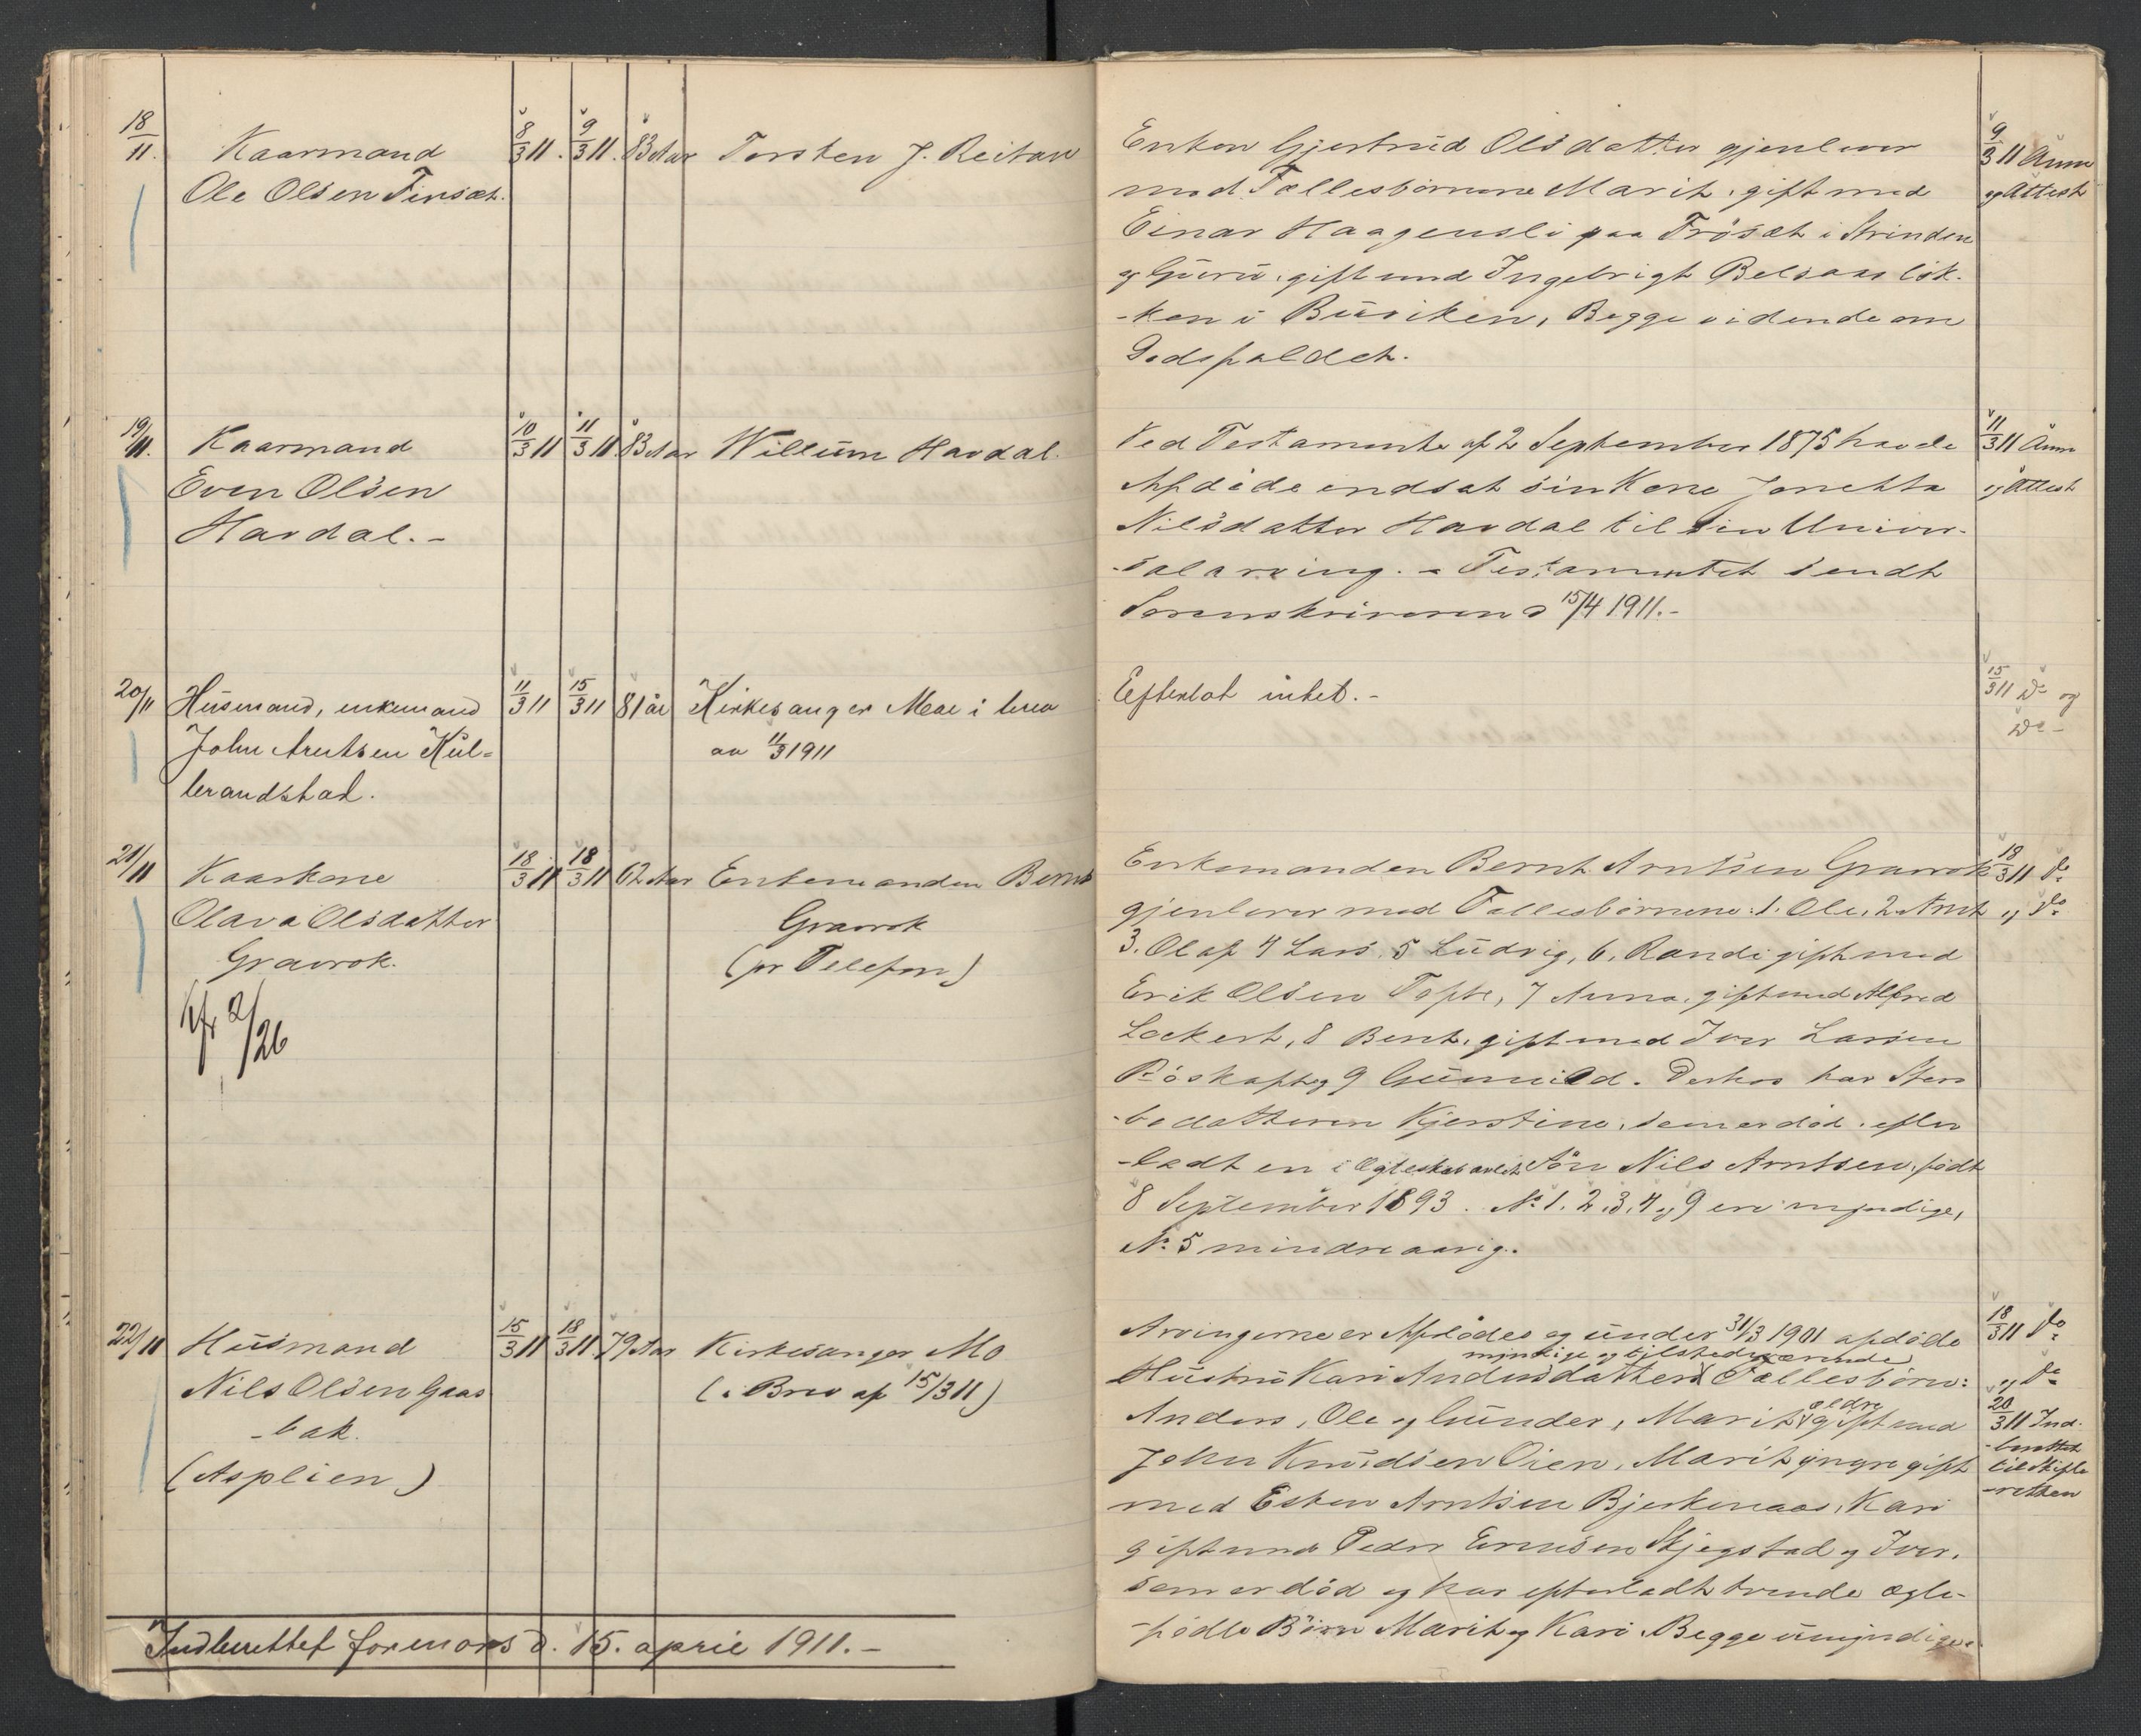 18/11. Kaarmand 8/3 11. 9/3 11. 83 Aar Torsten J. Reitan
Ole Olsen Finsæt.
Enken Gjertrud Olsdatter gjenlever
med Fællesbørnene Marit, gift med
Einar Haagensli paa Frösæt i Strinden
og Guru, gift med Ingebrigt Belsaas lök-
-ken i Buviken, Begge vidende om
Dødsfaldet.
9/3 11 Anm
og Attest
19/11. Kaarmand 10/3 11 11/3 11 83 Aar Willum Havdal.
Even Olsen
Havdal. -
Ved Testamente af 2 September 1875 havde
Afdøde indsat sin Kone Jonetta
Nilsdatter Havdal til sin Univer-
-salarving. - Testamentet sendt
Sorenskriveren d 15/4 1911. -
11/3 11 Anm
og Attest
20/11 Husmand, enkemand 11/3 11 15/3 11 81 år Kirkesanger Moe i brev
John Arntsen Kul= av 11/3 1911
brandstad.
Efterlot intet. -
15/3 11 Do og
Do -
21/11 Kaarkone 18/3 11 18/3 11 62 Aar Enkemanden Bernt
Olava Olsdatter Gravrok
Gravrok. (pr Telefon)
Kfr 2/26
Enkemanden Bernt Arntsen Gravrok
gjenlever med Fællesbørnene: 1. Ole, 2 Arnt
3. Olaf 4 Lars. 5 Ludvig, 6. Randi gift med
Erik Olsen Tofte, 7 Anna, gift med Alfred
Lockert, 8 Berit, gift med Iver Larsen
Röskaft og 9 Gunnild. Derhos har Sterv
-bodatteren Kjerstine, som er död, efter
-ladt en i Ægteskab avlet Sön Nils Arntsen, født
8 September 1893. No 1. 2. 3. 4 og 9 ere myndige,
No 5 mindreaarig.
18/3 11 Do
og Do
22/11 Husmand 15/3 11 18/3 11. 79 Aar Kirkesanger Mo
Nils Olsen Gaas (i Brev af 15/3 11)
-bak.
(Asplien)
Arvingerne er Afdødes og under 31/3 1901 afdøde
myndige og tilstedeværende
Hustru Kari Andersdatters Fællesbørn:
Anders, Ole og Gunder, Marit ældre gift med
John Knudsen Öien, Marit yngre gift
med Esten Arntsen Bjerkenaas, Kari
gift med Peder Ernsen Skjegstad og Iver,
som er död og har efterladt tvende ægte-
-fødte Börn Marit og Kari. Begge umyndige.
18/3 11 Do
og Do
20/3 11 Ind-
-berettet
til Skifte
-retten
Indberettet forenors d. 15. april 1911. -